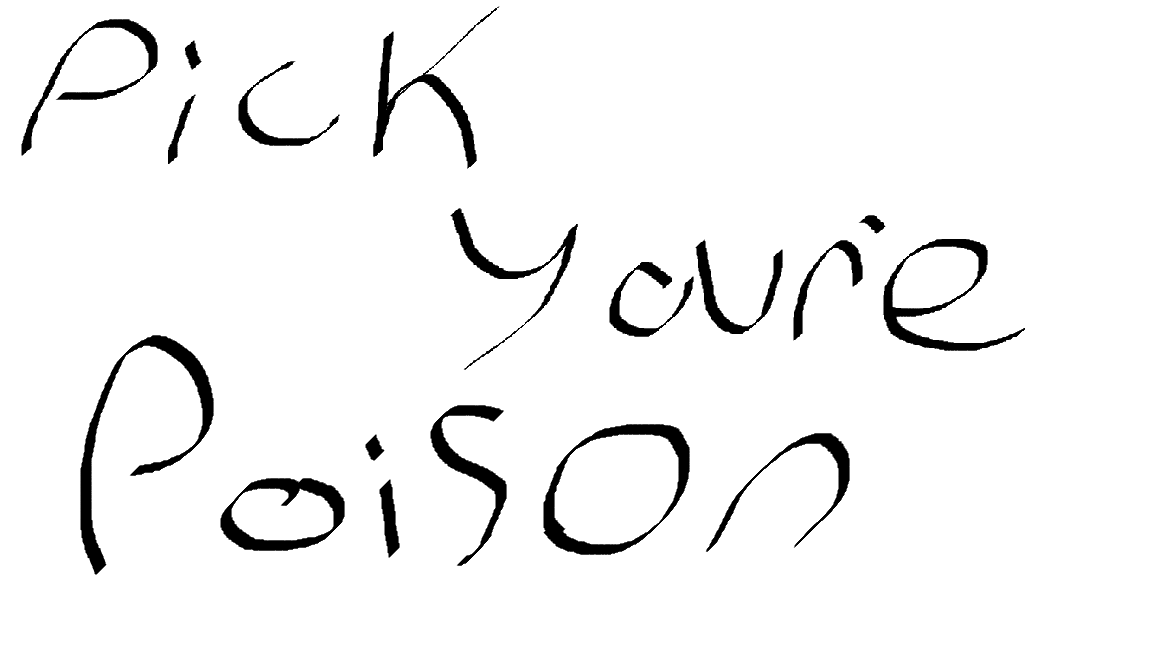 Pick
you're
Poison